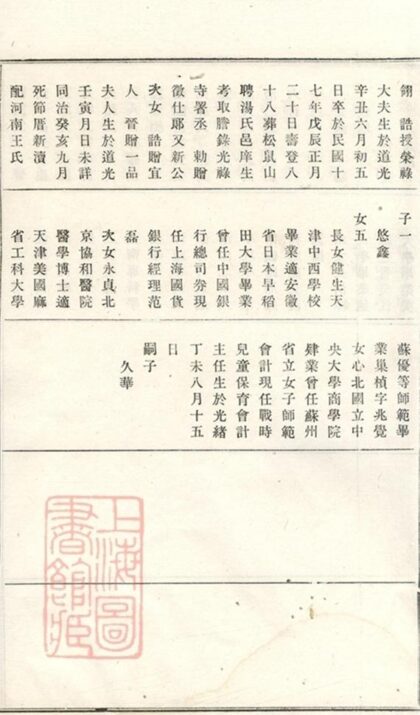 翎 誥授榮祿
大夫生於道光
辛丑六月初五
日卒於民國十
七年戊辰正月
二十日壽登八
十八葬松鼠山
聘湯氏邑庠生
考取謄錄光祿
寺署丞 勅贈
徵仕郎又新公
次女 誥贈宜
人 晉贈一品
夫人生於道光
壬寅月日未詳
同治癸亥九月
死節厝新瀆
配河南王氏
子一
悠鑫
女五
長女健生天
津中西學校
畢業適安徽
省日本早稻
田大學畢業
曾任中國銀
行總司券現
任上海國貨
銀行經理范
磊
次女永貞北
京協和醫院
醫學博士適
天津美國麻
省工科大學
蘇優等師範畢
業巢楨字兆覺
女心北國立中
央大學商學院
肄業曾任蘇州
省立女子師範
會計現任戰時
兒童保育會計
主任生於光緒
丁未八月十五
日
嗣子
久華
上海圖
書館藏